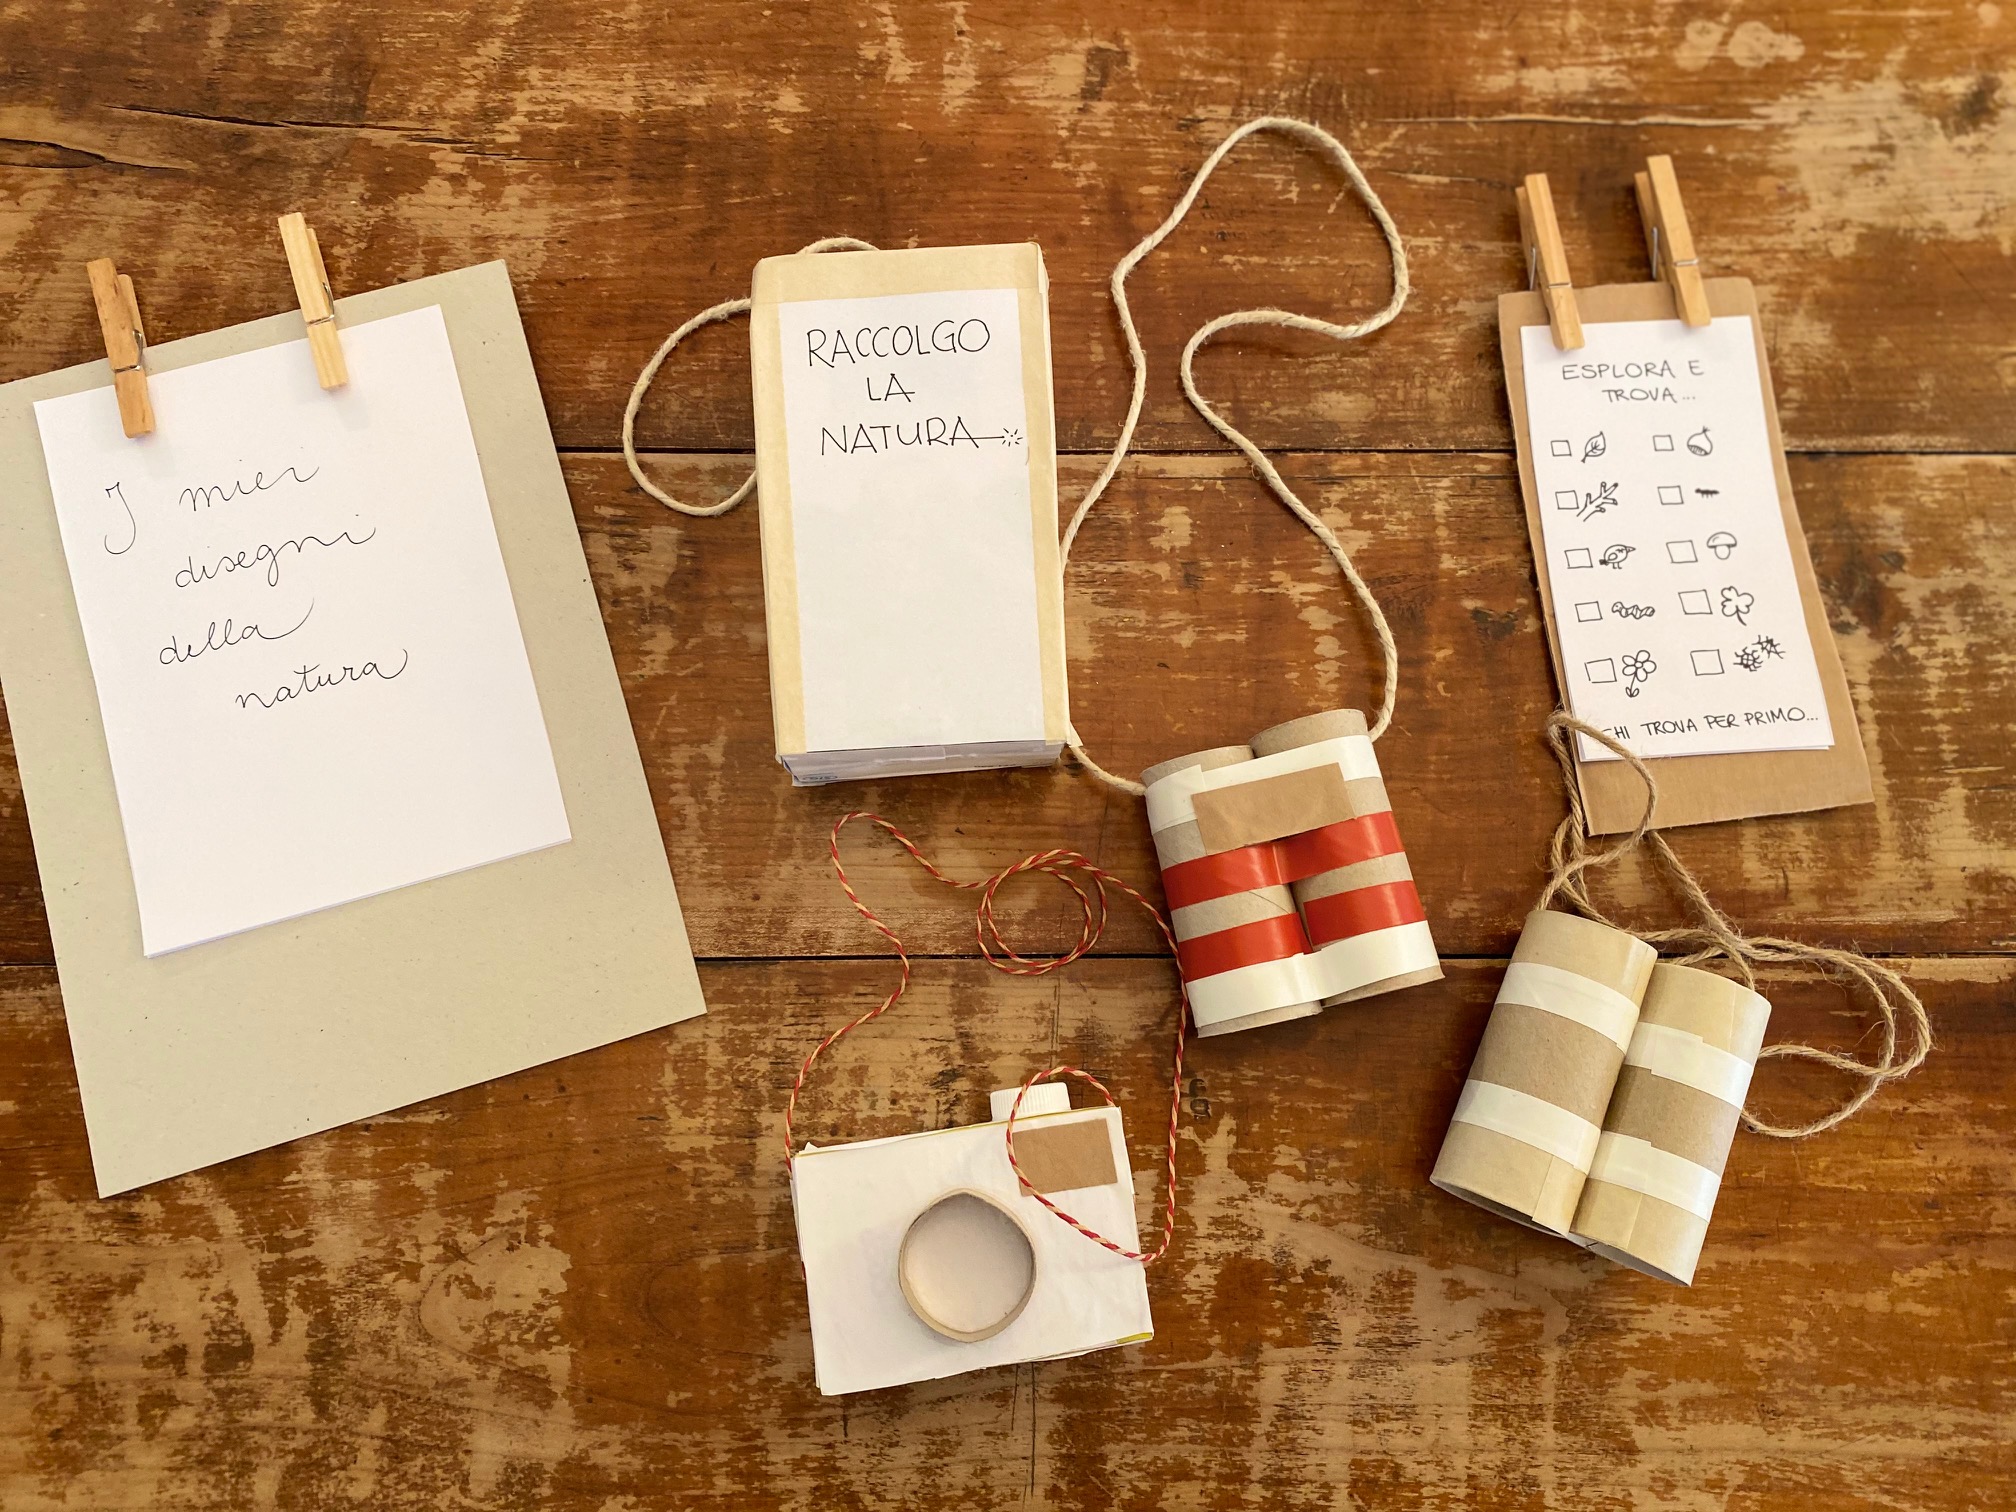 I miei
disegni
della
natura
RACCOLGO
LA
NATURA
ESPLORA E
TROVA...
CHI TROVA PER PRIMO...